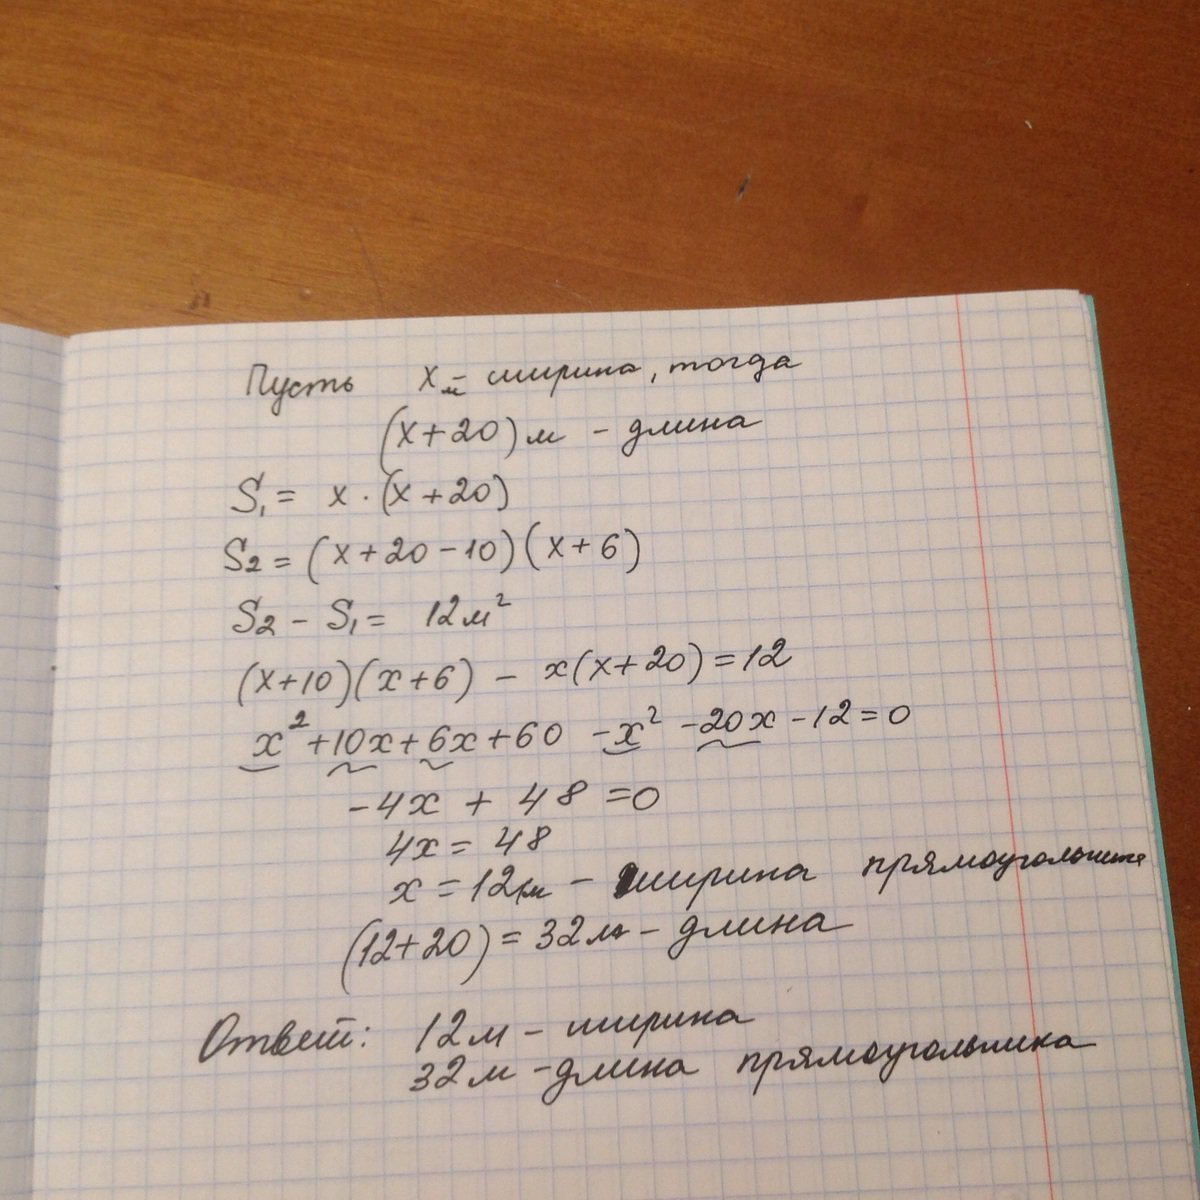 Пусть x м - ширина, тогда
(x+20) м - длина
S₁ = x · (x+20)
S₂ = (x+20-10)(x+6)
S₂ - S₁ = 12 м²
(x+10)(x+6) - x(x+20) = 12
x² + 10x + 6x + 60 - x² - 20x - 12 = 0
-4x + 48 = 0
4x = 48
x = 12 м - ширина прямоугольника
(12+20) = 32 м - длина
Ответ: 12 м - ширина
32 м - длина прямоугольника